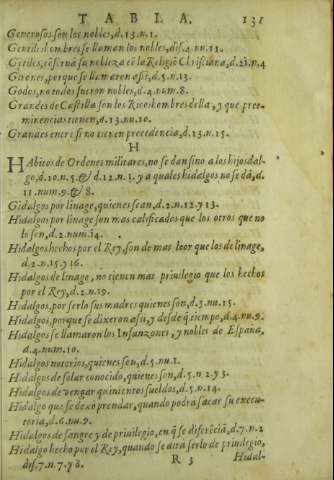 TABLA. 131
Generosos son los nobles, d. 13. n. 1.
Gentiles hombres se llaman los nobles, dis. 4. nu. 12.
Gētiles, cōseruā su nobleza cō la Religiō Christiana, d. 21. n. 4
Girones, porque se llamaron assi, d. 5. n. 13.
Godos, no todos fueron nobles, d. 4. num. 8.
Grandes de Castilla son los Ricoshombres della, y que pree-
minencias tienen, d. 13. nu. 10.
Grandes entre si no tienen precedencia, d. 13. n. 15.
H
HAbitos de Ordenes militares, no se dan sino a los hijosdal-
go, d. 10. n. 5. & d. 12. n. 1. y a quales hidalgos no se dā, d.
11. num. 9. & 8.
Gidalgos por linage, quienes sean, d. 2. n. 12. y 13.
Hidalgos por linage son mas calificados que los otros que no
lo son, d. 2. num. 14.
Hidalgos hechos por el Rey, son de mas loor que los de linage,
d. 2. n. 15. y 16.
Hidalgos de linage, no tienen mas priuilegio que los hechos
por el Rey, d. 2. n. 19.
Hidalgos, por serlo sus madres quienes son, d. 3. nu. 15.
Hidalgos, porque se dixeron assi, y desde q̄ tiempo, d. 4. nu. 9.
Hidalgos se llamaron los Infanzones, y nobles de España,
d. 4. num. 10.
Hidalgos notorios, quienes son, d. 5. nu. 1.
Hidalgos de solar conocido, quienes son, d. 5. n 2. y 3.
Hidalgos de vengar quinientos sueldos, d. 5. n. 14.
Hidalgo que se dexo prendar, quando podra sacar su execu-
toria, d. 6. nu. 9.
Hidalgos de sangre y de priuilegio, en q̄ se diferēciā, d. 7. n. 2
Hidalgo hecho por el Rey, quando se dira serlo de priuilegio,
dis. 7. n. 7. y 8.
R 3 Hidal-